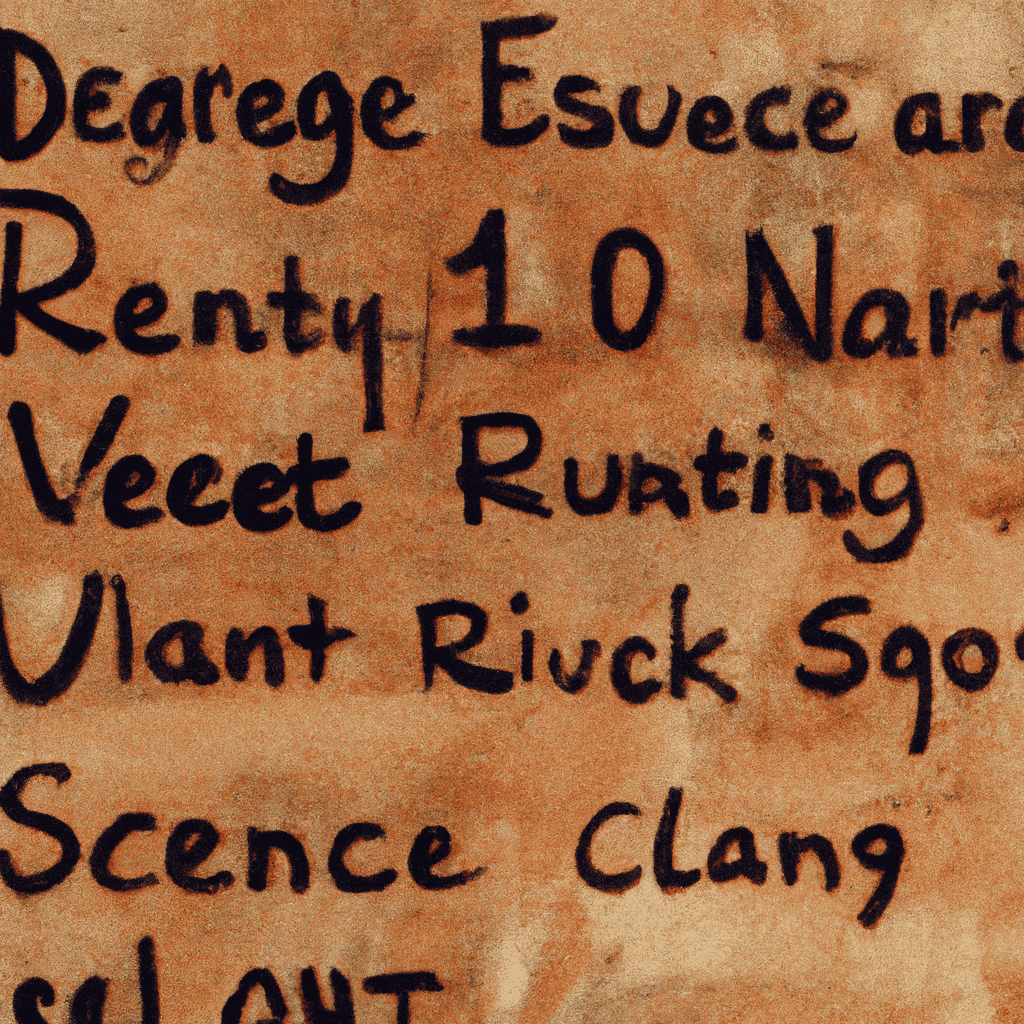 Degrege Esuece
Renty 10
Veeet Runting
Vlant Riuck
Scence Clang